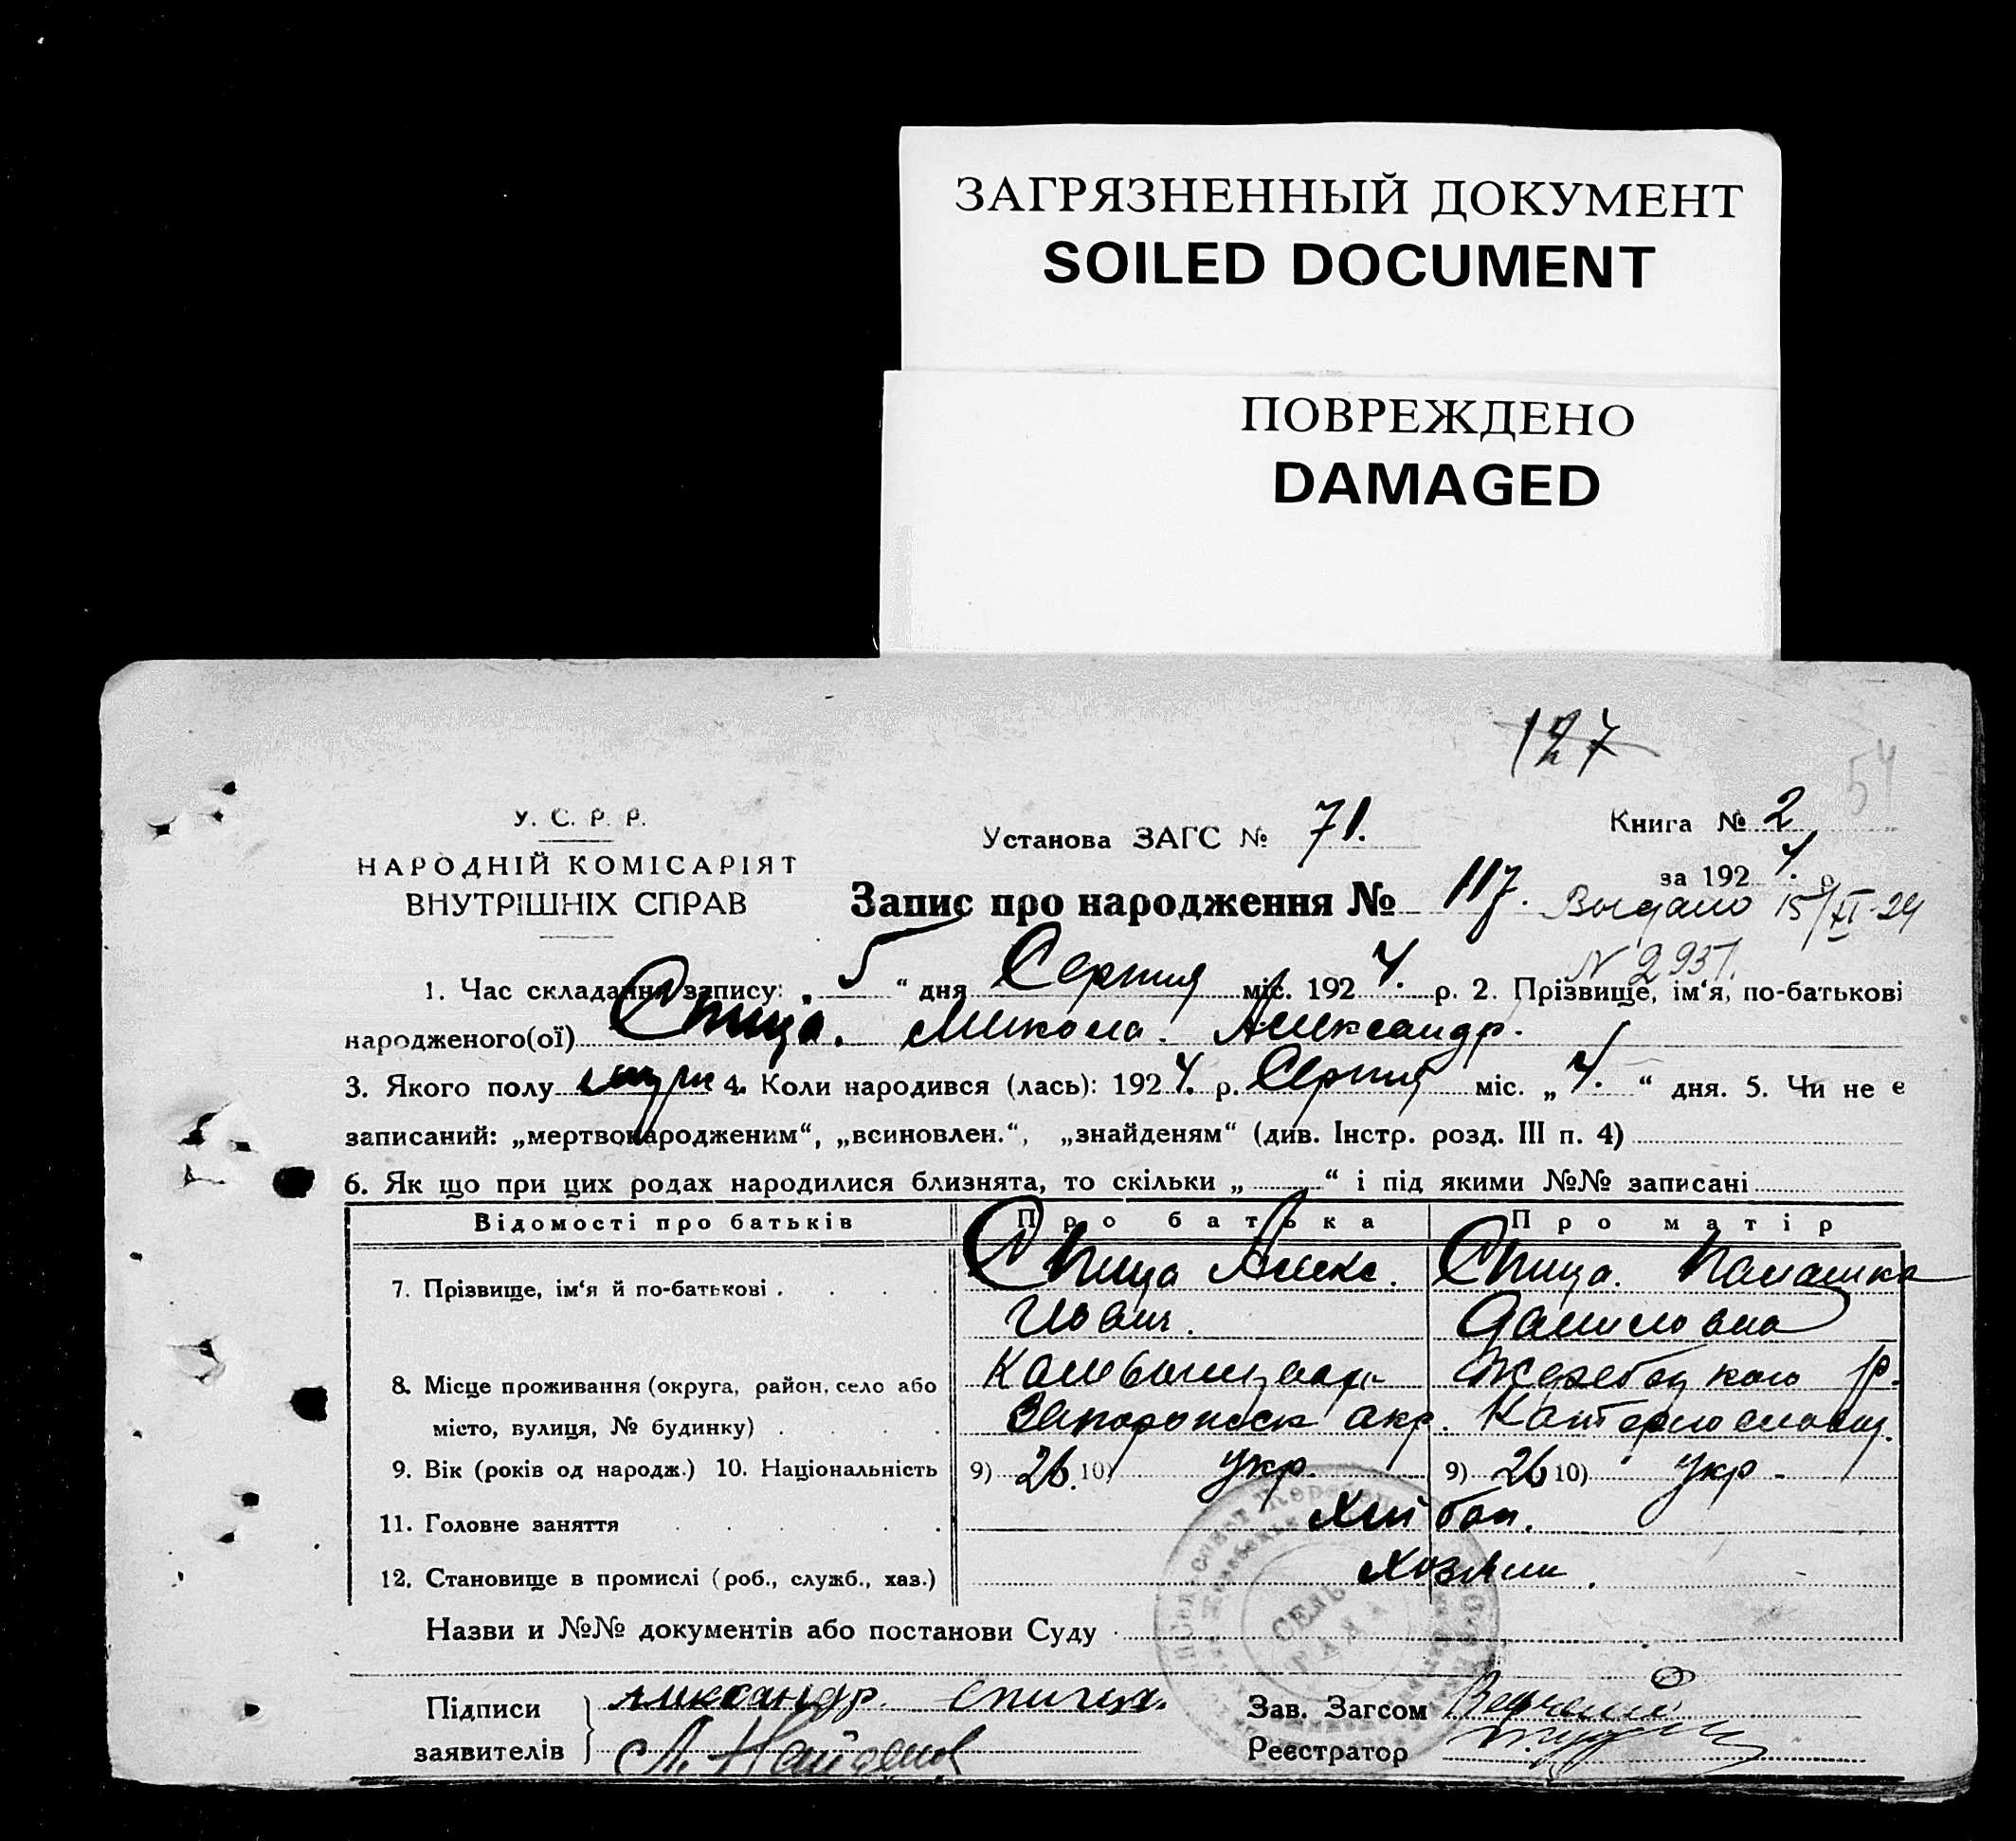 ЗАГРЯЗНЕННЫЙ ДОКУМЕНТ
SOILED DOCUMENT
ПОВРЕЖДЕНО
DAMAGED
127
54
У. С. Р. Р.
НАРОДНІЙ КОМІСАРІЯТ
ВНУТРІШНІХ СПРАВ
Установа ЗАГС № 71.
Книга № 2
за 1924. р.
Запис про народження № 117.
15/XI-24
N 2937.
1. Час складання запису: „ 5 “ дня Серпня міс. 1924. р. 2. Прізвище, ім‘я, по-батькові
народженого(ої) Спица. Микола. Александр.
3. Якого полу муж 4. Коли народився (лась): 1924. р. Серпня міс. „ 4. “ дня. 5. Чи не є
записаний: „мертвонародженим“, „всиновлен.“, „знайденям“ (див. Інстр. розд. III п. 4)
6. Як що при цих родах народилися близнята, то скільки „ “ і під якими №№ записані
Відомості про батьків Про батька Про матір
7. Прізвище, ім‘я й по-батькові . Спица Алекс. Спица.
Даниловна
8. Місце проживання (округа, район, село або
місто, вулиця, № будинку) Запорожск окр.
9. Вік (років од народж.) 10. Національність 9) 26. 10) Укр. 9) 26 10) Укр.
11. Головне заняття Хлібоп.
12. Становище в промислі (роб., служб., хаз.) Хозяин.
Назви и №№ документів або постанови Суду
СЕЛЬ
РАДА
Підписи
заявителів
Зав. Загсом
Реєстратор